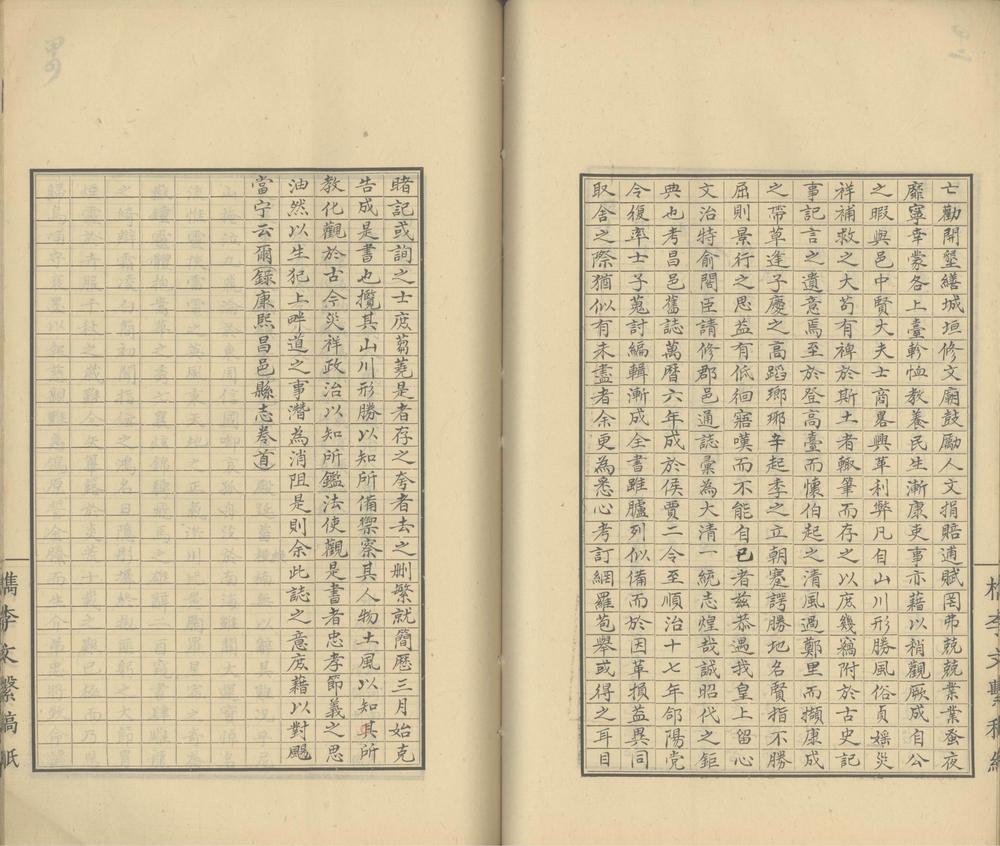 亡勸開墾繕城垣修文廟鼓勵人文捐賠逋賦罔弗兢兢業業蚤夜
靡寧幸蒙各上臺軫恤教養民生漸康吏事亦藉以稍觀厥成自公
之暇與邑中賢大夫士商畧興革利弊凡自山川形勝風俗貞媱災
祥補救之大苟有裨於斯土者輙筆而存之以庶幾竊附於古史記
事記言之遺意焉至於登高臺而懷伯起之清風過鄭里而擷康成
之帶草逢子慶之高蹈瑯琊辛起季之立朝蹇諤勝地名賢指不勝
屈則景行之思益有低徊寤嘆而不能自已者兹恭遇我皇上留心
文治特俞閣臣請修郡邑通誌彙為大清一統志煌哉誠昭代之鉅
典也考昌邑舊誌萬曆六年成於侯賈二令至順治十七年郃陽党
令復率士子蒐討編輯漸成全書雖臚列似備而於因革損益異同
取舍之際猶似有未盡者余更為悉心考訂網羅苞舉或得之耳目
睹記或詢之士庶蒭蕘是者存之夸者去之刪繁就簡歷三月始克
告成是書也攬其山川形勝以知所備禦察其人物土風以知其所
教化觀於古今災祥政治以知所鑑法使觀是書者忠孝節義之思
油然以生犯上畔道之事潛為消阻是則余此誌之意庶藉以對颺
當宁云爾錄康熙昌邑縣志卷首
檇李文繫稿紙